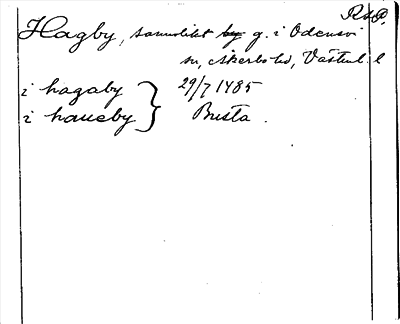 RAP.
Hagby, sannolikt by g. i Odensvi
sn, Åkerbo hd, Västml. l
i hagaby
i haueby
29/7 1485
Brusta.